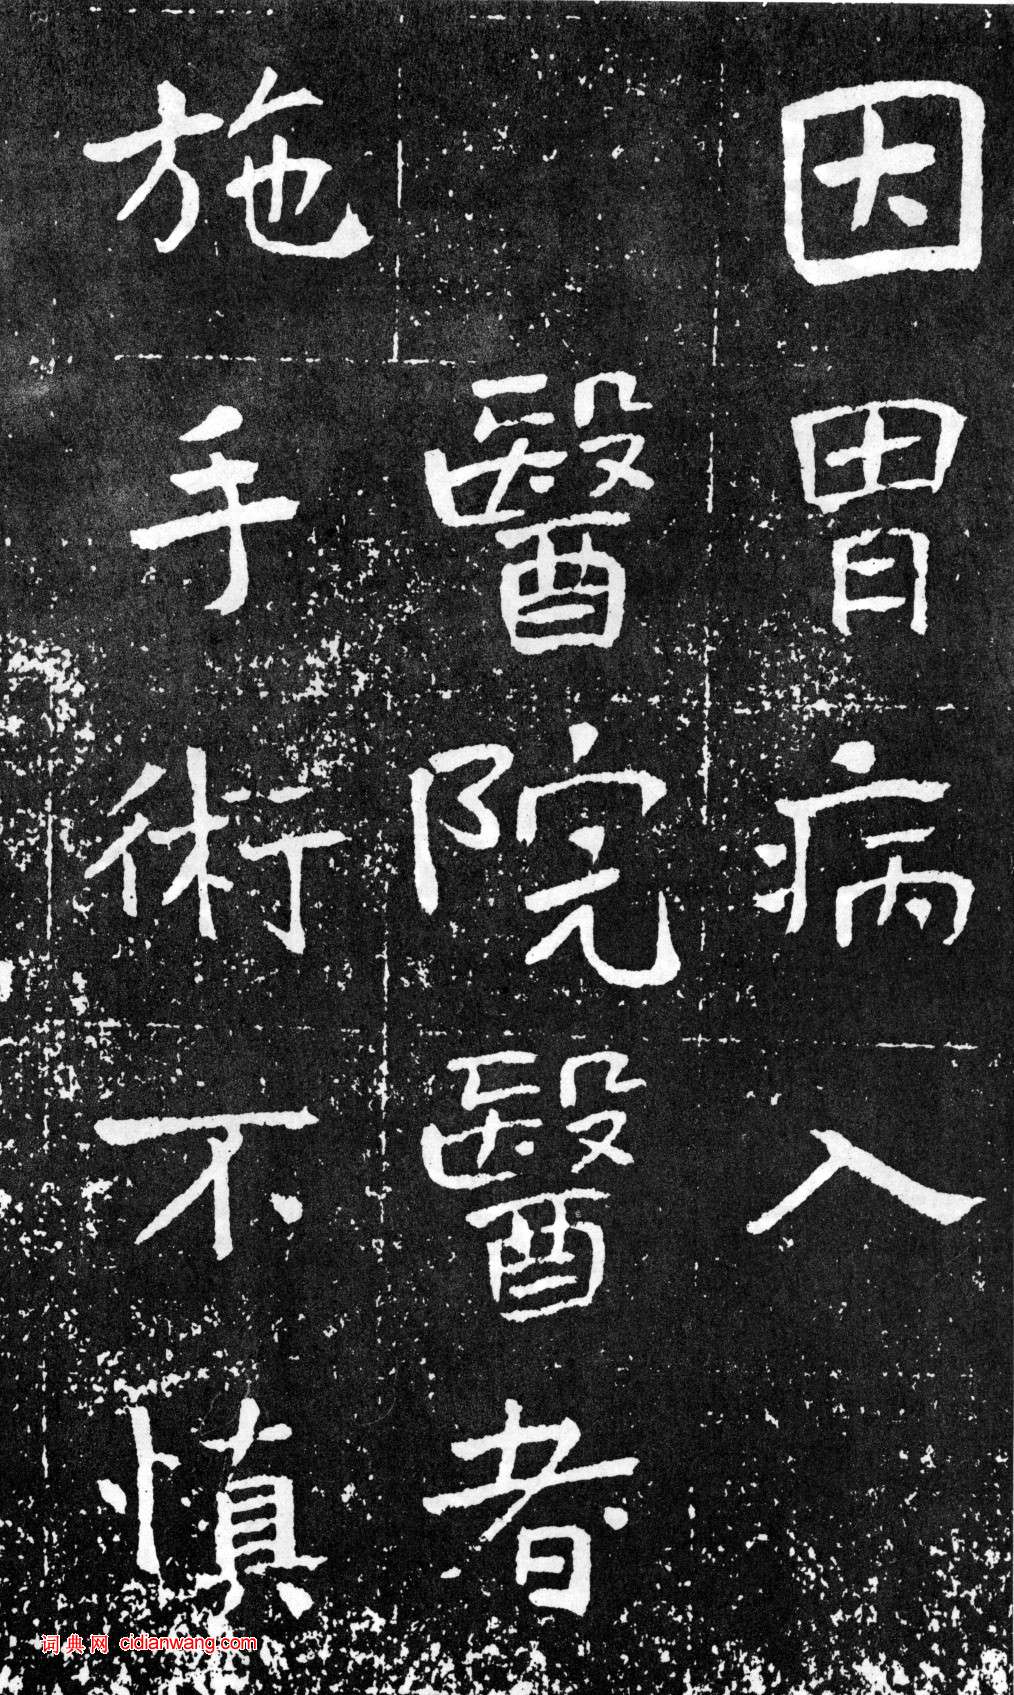 因胃病入
醫院醫者
施手術不慎
词典网 cidianwang.com